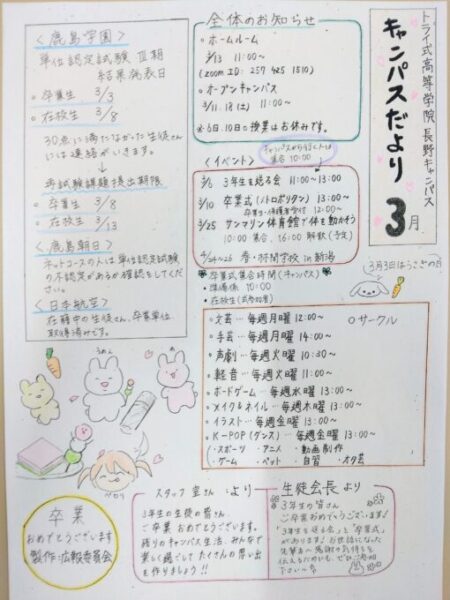 トライ式高等学院 長野キャンパス
キャンパスだより
3月
3月3日はうさぎの日
全体のお知らせ
○ホームルーム
3/13 11:00〜
(zoom ID: 257 425 1510)
○オープンキャンパス
3/11.18(土) 11:00〜
※6日.10日の授業はお休みです。
〈イベント〉
集合 10:00
3/6 3年生を送る会 11:00〜13:00
3/10 卒業式(メトロポリタン) 13:00〜
卒業生・保護者受付 12:00〜
3/25 サンマリン体育館で体を動かそう
10:00 集合、16:00 解散(予定)
24〜26 春・特別学校 in 新潟
卒業式集合時間(キャンパス)
・準備係 10:00
・在校生
○サークル
○文芸…毎週月曜 12:00〜
○手芸…毎週月曜 14:00〜
○声劇…毎週火曜 10:30〜
○軽音…毎週火曜 11:00〜
○ボードゲーム…毎週水曜 13:00〜
○メイク&ネイル…毎週木曜 13:00〜
○イラスト…毎週金曜 13:00〜
○K-POP(ダンス)…毎週金曜 13:00〜
・スポーツ ・アニメ ・動画制作
・ゲーム ・ペット ・自習 ・オタ芸
〈鹿島学園〉
単位認定試験 Ⅲ期
結果発表日
○卒業生 3/3
○在校生 3/8
30点に満たなかった生徒さん
には連絡がいきます。
再試験課題提出期限
○卒業生 3/8
○在校生 3/13
〈鹿島朝日〉
ネットコースの人は単位認定試験
の不認定があるか確認をしてくだ
さい。
〈日本航空〉
在籍中の生徒さん、卒業単位
取得済みです。
卒業
おめでとうございます
製作:広報委員会
スタッフ 室さん より
3年生の生徒の皆さん
ご卒業 おめでとうございます。
残りのキャンパス生活、みんなで
楽しく過ごして たくさんの思い出
を作りましょう!!
生徒会長より
3年生の皆さん
ご卒業おめでとうございます!
「3年生を送る会」と「卒業式」
があります! お世話になった
先輩方へ感謝の気持ちを